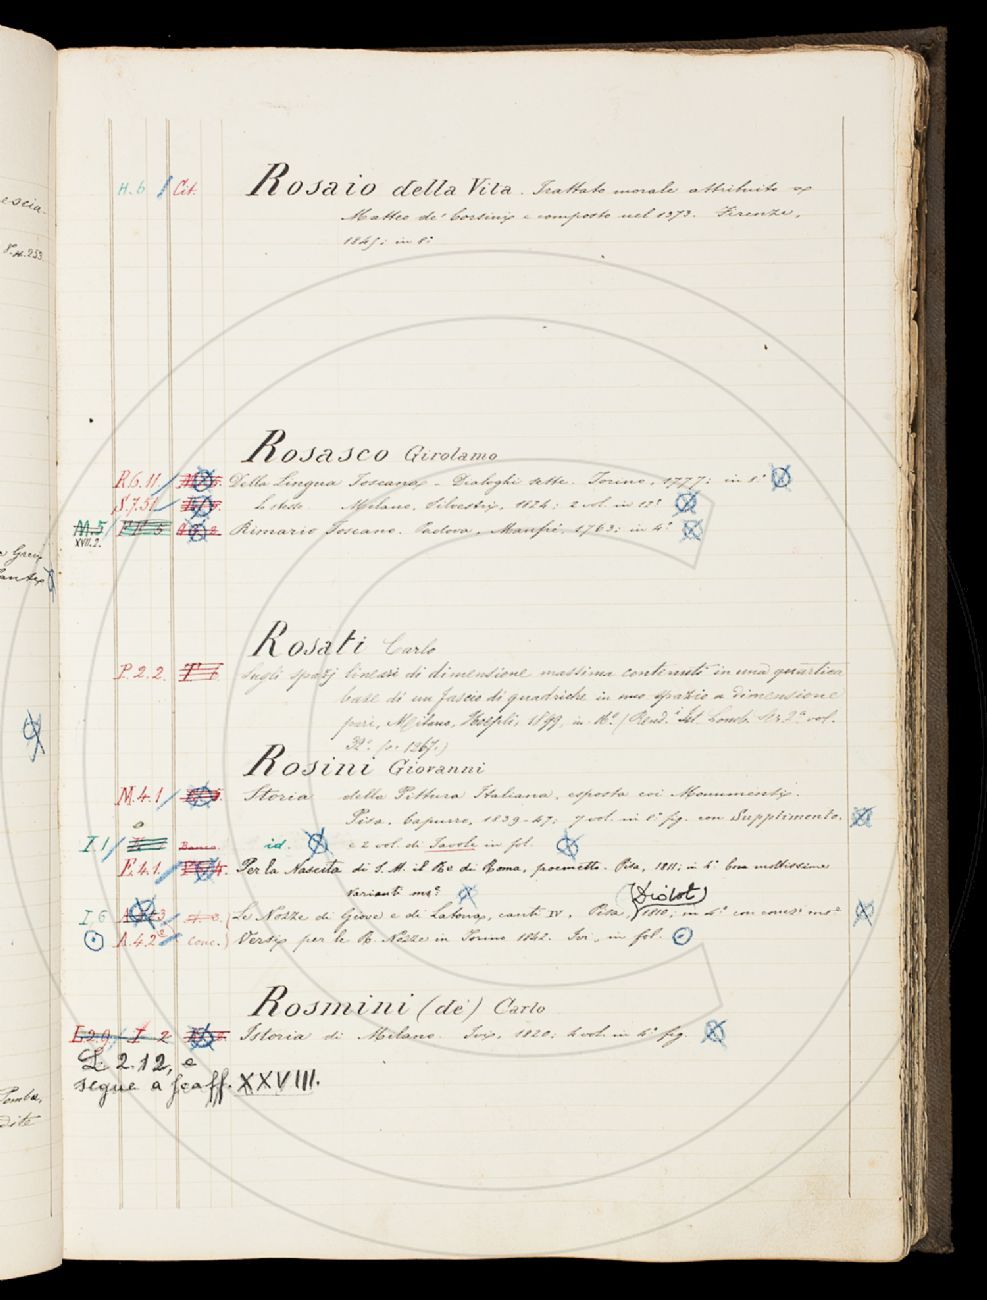 H.6 / Cit. Rosaio della Vita. Trattato morale attribuito a
Matteo de' Corsini e composto nel 1373. Firenze,
1845; in 8°
Rosasco Girolamo
R.6.11 Della Lingua Toscana - Dialoghi sette. Torino, 1777; in 8°
S.7.51 lo stesso. Milano, Silvestri, 1824; 2 vol. in 12°
M.5 Rimario Toscano. Padova, Manfrè, 1763; in 4°
XVII.2.
Rosati Carlo
P.2.2. Sugli spazj lineari di dimensione massima contenuti in una quartica
base di un fascio di quadriche in uno spazio a dimensione
pari, Milano, Hoepli, 1899, in 16° (Rend.i Ist. Lomb. S. 2a vol.
32° p. 1267.)
Rosini Giovanni
M.4.1 Storia della Pittura Italiana, esposta coi Monumenti.
Pisa, Capurro, 1839-47; 7 vol. in 8° fig. con Supplimento.
I 1 Banco. id. e 2 vol. di Tavole in fol.
E.4.1 Per la Nascita di S. M. il Re di Roma, poemetto. Pisa, 1811; in 4° con moltissime
varianti ms.e
(Didot)
I.6 Le Nozze di Giove e di Latona, canti IV. Pisa, 1810; in 4° con correz.i ms.e
A.4.2a Conc.) Versi per le R. Nozze in Torino 1842. Ivi, in fol.
Rosmini (de') Carlo
E 2.9 / I 2 Istoria di Milano. Ivi, 1820; 4 vol. in 4° fig.
L. 2.12, e
segue a scaff. XXVIII.